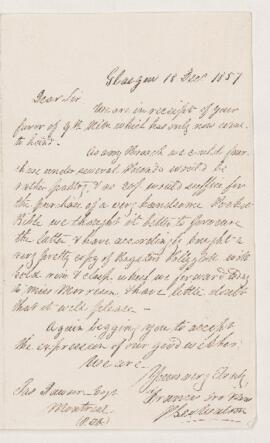 Glasgow 18 Decr 1857
Dear Sir
We are in receipt of your
favor of 9th Ulto which has only now come
to hand.
As any Broach we could pur
chase under several Pounds would be
rather paltry, & as 20/ would suffice for
the purchase of a very handsome Pocket
Bible we thought it better to
the latter & have accordingly bought a
very pretty copy of Bagsters Bible with
gold rim & clasp which we forward today
to Miss Morrison & have little doubt
that it will please —
Again begging you to accept
the expression of our good wishes
We are
Yours very truly
Jas Dawson Esqr
Montreal